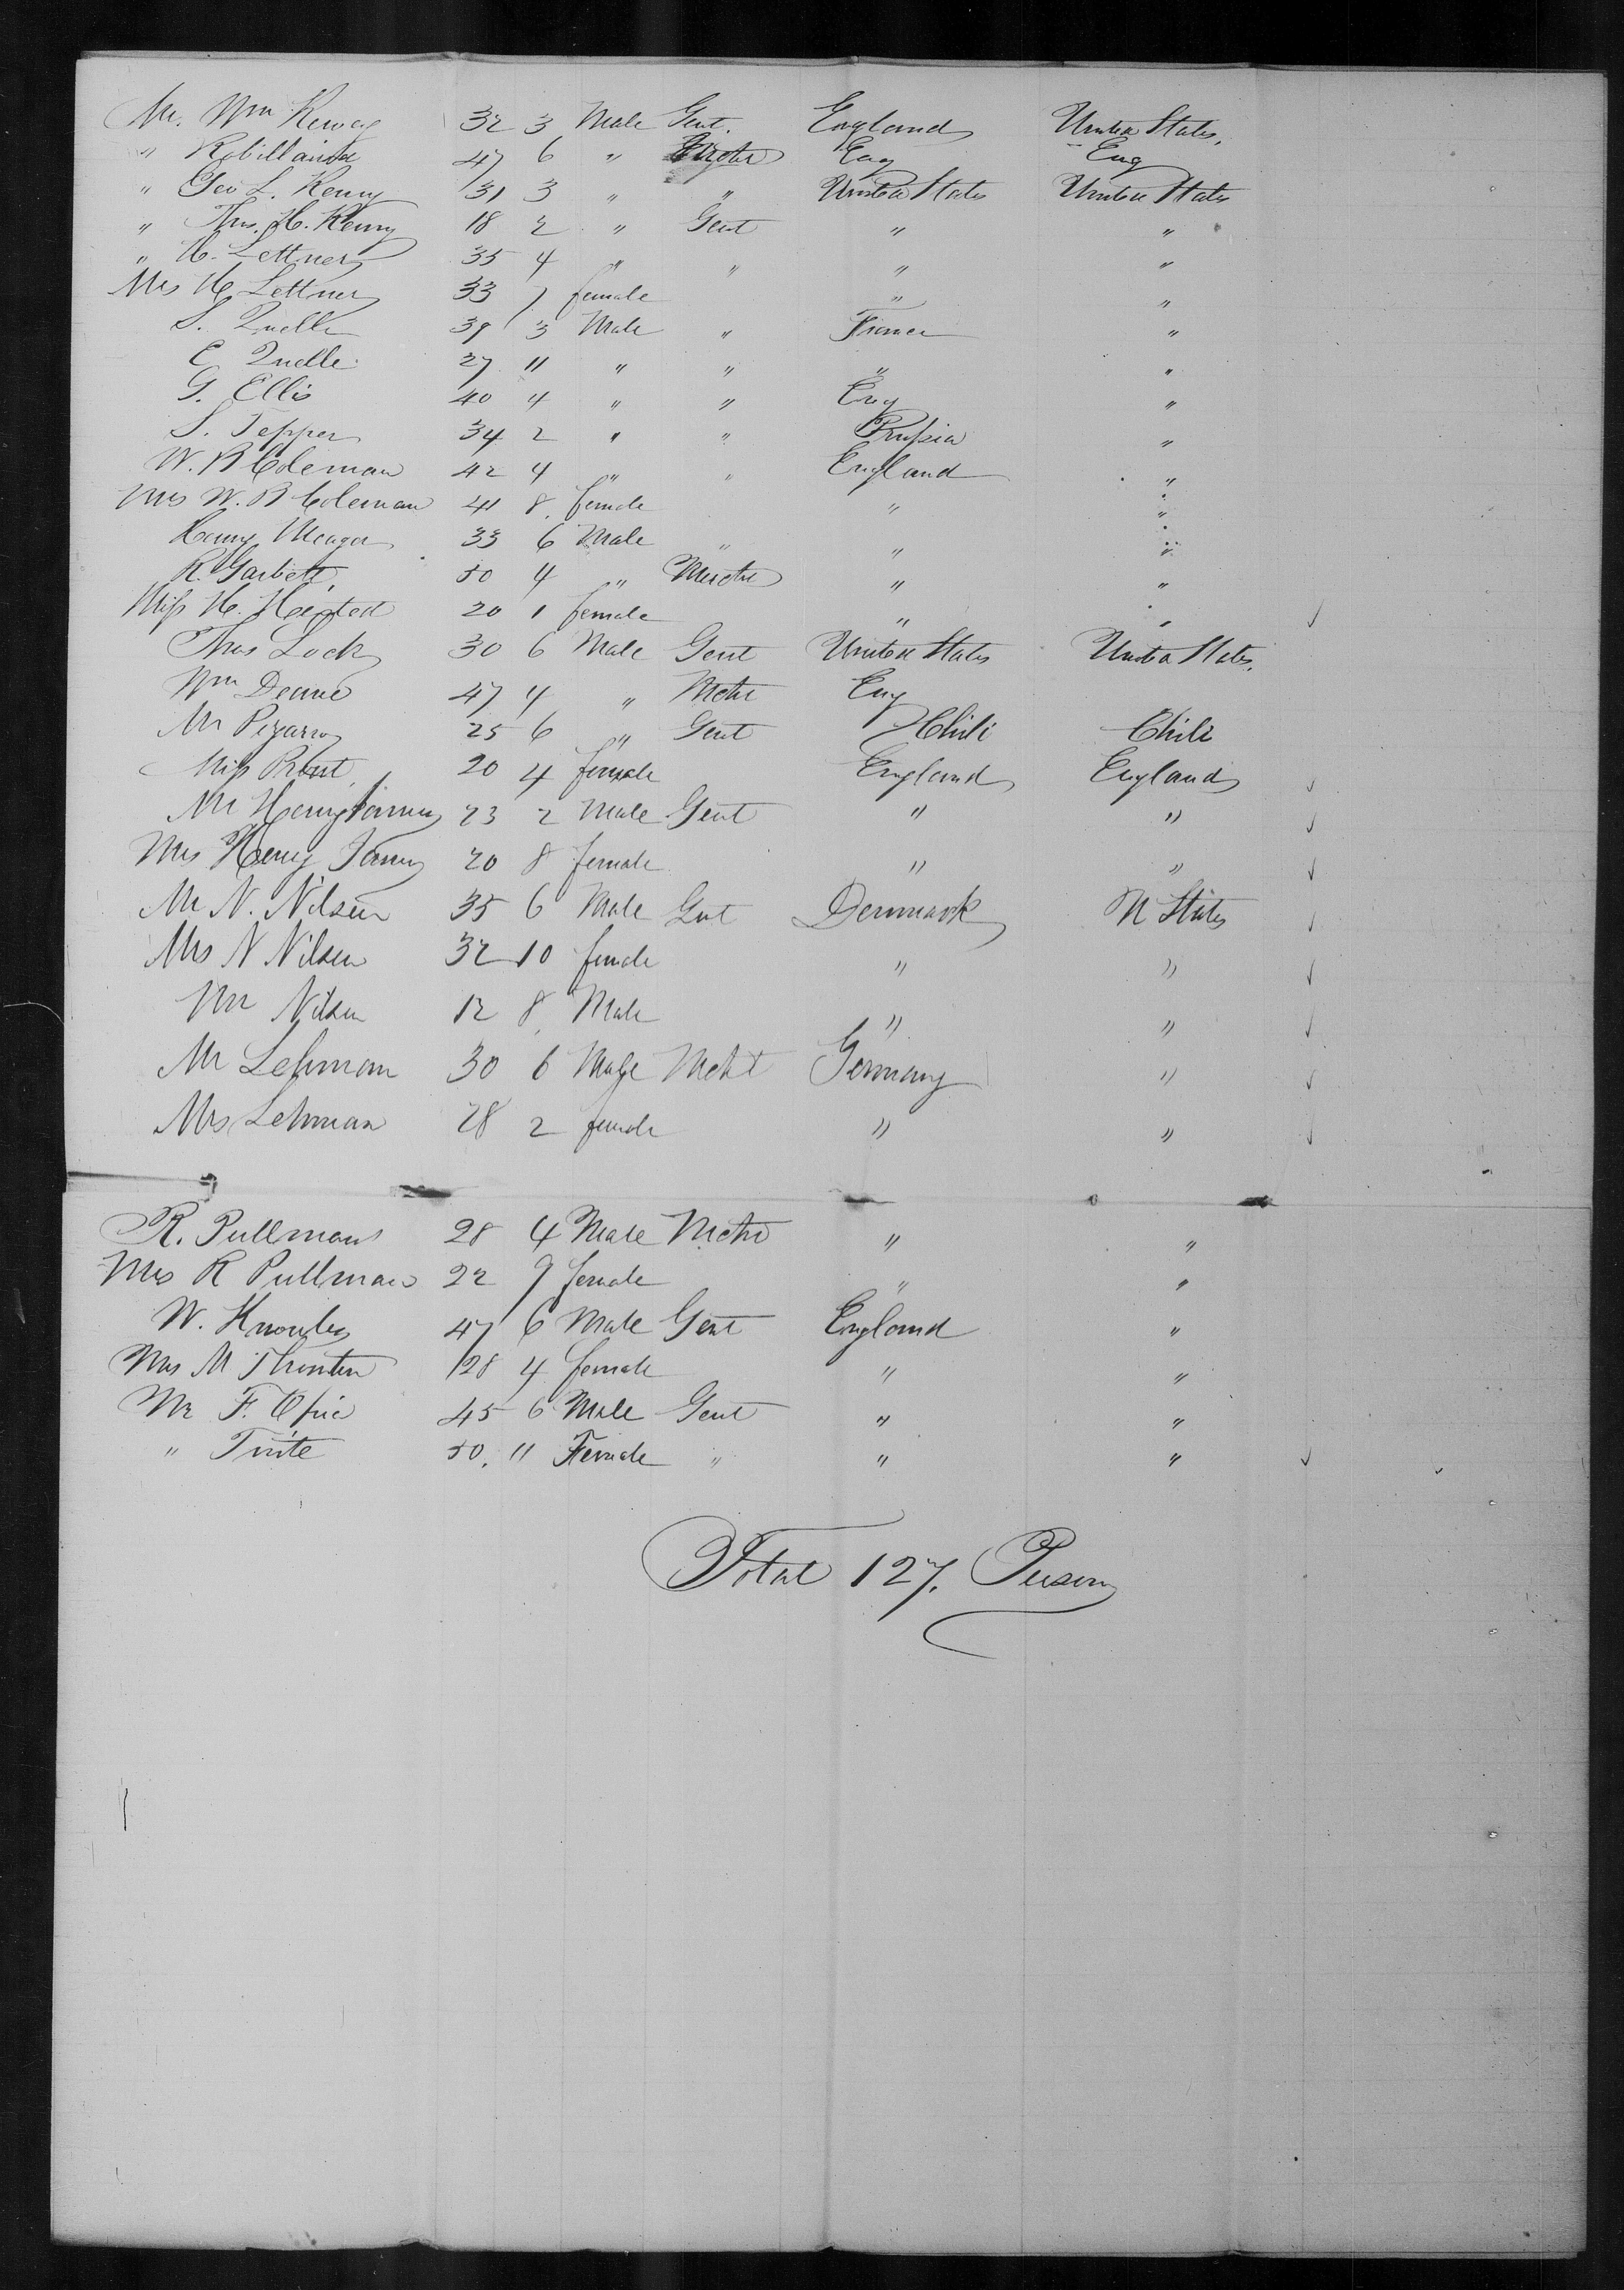 Mr. Wm Keway 32 3 Male Gent. England United States.
" Robillaird 47 6 " Mrcht Eng Eng
" Geo L. Kenny 31 3 " " United States United States
" Thos. H. Kenny 18 2 " Gent " "
" H. Lettner 35 4 " " " "
Mrs H Lettner 33 7 female " "
S. Quelle 39 3 Male " France "
E Quelle 27 11 " " " "
G. Ellis 40 4 " " Eng "
S. Tepper 34 2 " " Prussia "
W. B Coleman 42 4 " " England "
Mrs W. B Coleman 41 8 female " "
Henry Meager 33 6 Male " " "
R. Garbett 50 4 " Mercht " "
Miss H. 20 1 female " "
Thos Lock 30 6 Male Gent United States United States.
Wm Deane 47 4 " Mcht Eng
Mr Pizarro 25 6 " Gent Chili Chili
Miss 20 4 female England England
Mr Henry 23 2 Male Gent " "
Mrs Henry 20 8 female " "
Mr N. Nilsen 35 6 Male Gent Denmark U States
Mrs N Nilsen 32 10 female " "
Mr Nilsen 12 8 Male " "
Mr Lehman 30 6 Male Mcht Germany "
Mrs Lehman 28 2 female " "
R. Pullman 28 4 Male Mcht " "
Mrs R Pullman 22 9 female " "
W. Knowles 47 6 Male Gent England "
Mrs M Thornton 28 4 female " "
Mr F. Opie 45 6 Male Gent " "
" 50. 11 Female " " "
Total 127. Persons